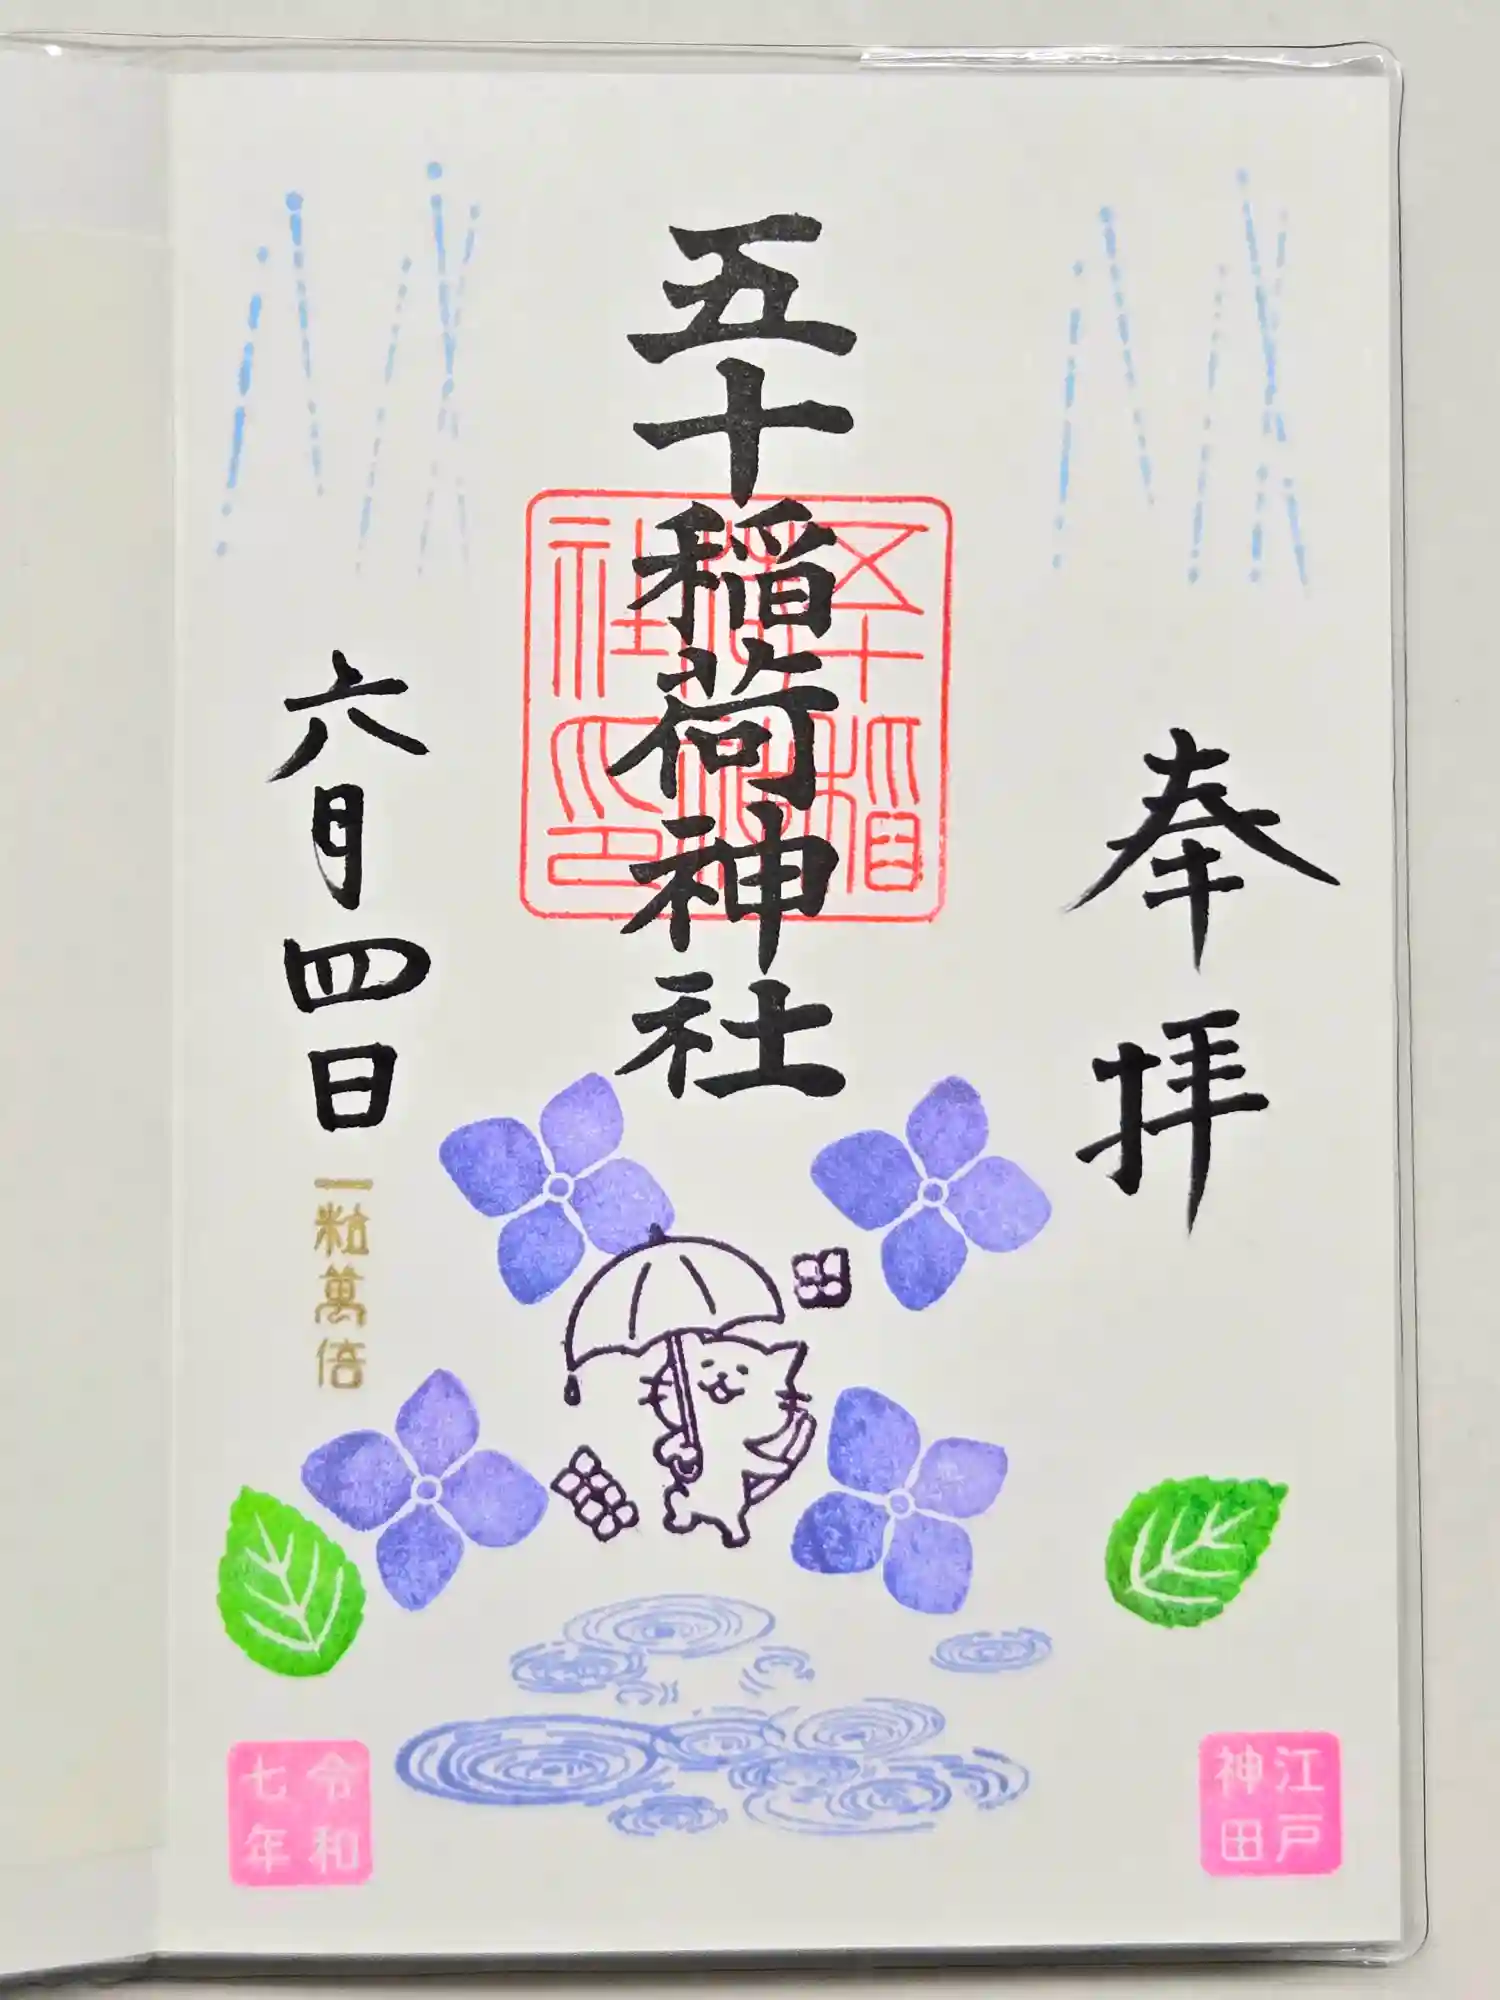 奉拝
五十稲荷神社
五十稲荷神社印
六月四日
一粒萬倍
江戸神田
令和七年